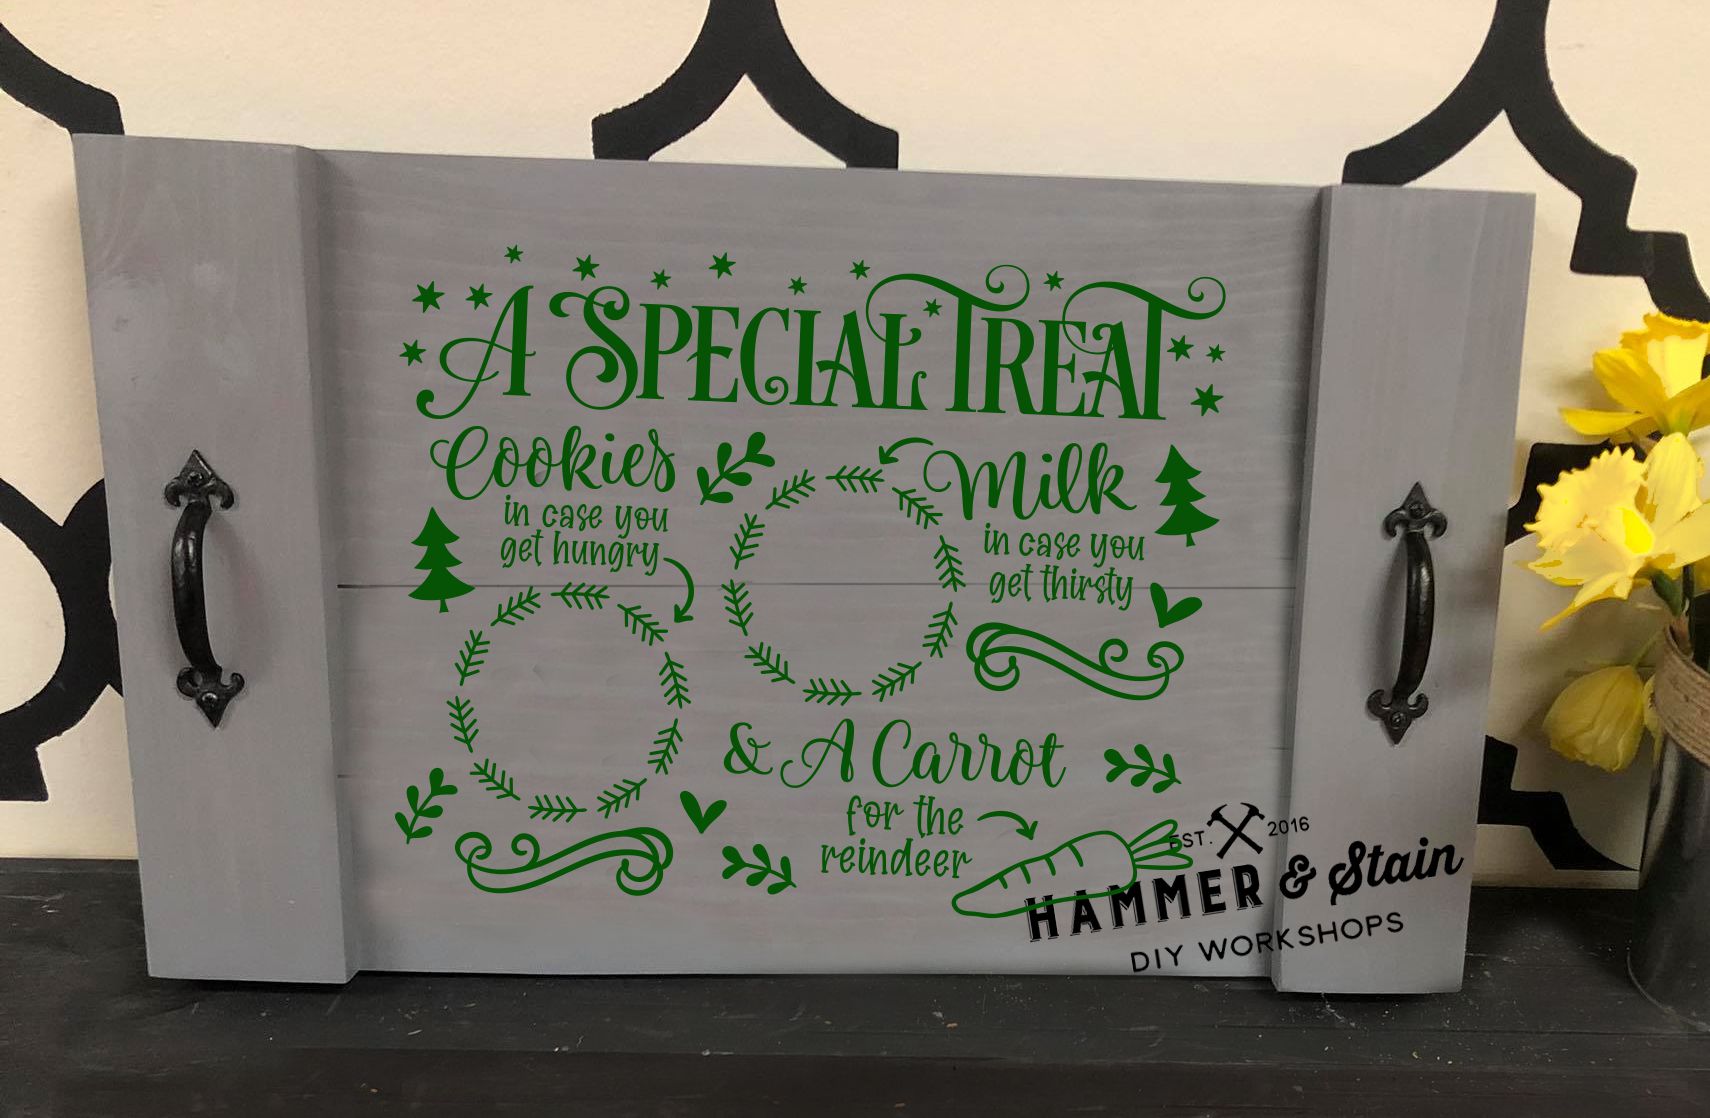 A SPECIAL TREAT
Cookies
in case you
get hungry
Milk
in case you
get thirsty
& A Carrot
for the
reindeer
EST. 2016
HAMMER & Stain
DIY WORKSHOPS